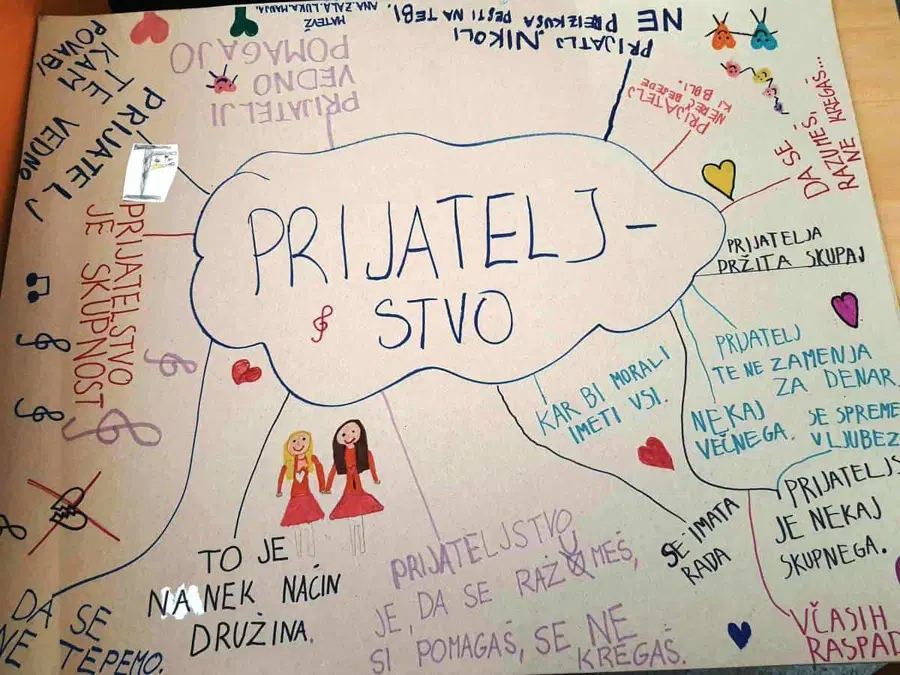 PRIJATELJ-
STVO
MATEVŽ
ANA, ZALA, LUKA, MANJA.
PRIJATLJ NIKOLI
NE PREIZKUŠA PESTI NA TEBI.
PRIJATELJI
VEDNO
POMAGAJO
PRIJATELJ
TE VEDNO
KAM
POVABI
PRIJATELJ
NE REČ BESEDE
KI
BOLI.
DA SE
RAZUMEŠ.
NE KREGAŠ...
PRIJATELJA
DRŽITA SKUPAJ
PRIJATELJ
TE NE ZAMENJA
ZA DENAR
NEKAJ
VEČNEGA.
SE SPREME
V LJUBEZ
PRIJATELJS
JE NEKAJ
SKUPNEGA.
VČASIH
RASPAD
KAR BI MORALI
IMETI VSI.
SE IMATA
RADA
PRIJATELJSTVO
JE, DA SE RAZUMEŠ,
SI POMAGAŠ, SE NE
KREGAŠ.
TO JE
NA NEK NAĆIN
DRUŽINA.
DA SE
NE TEPEMO.
PRIJATELSTVO
JE SKUPNOST